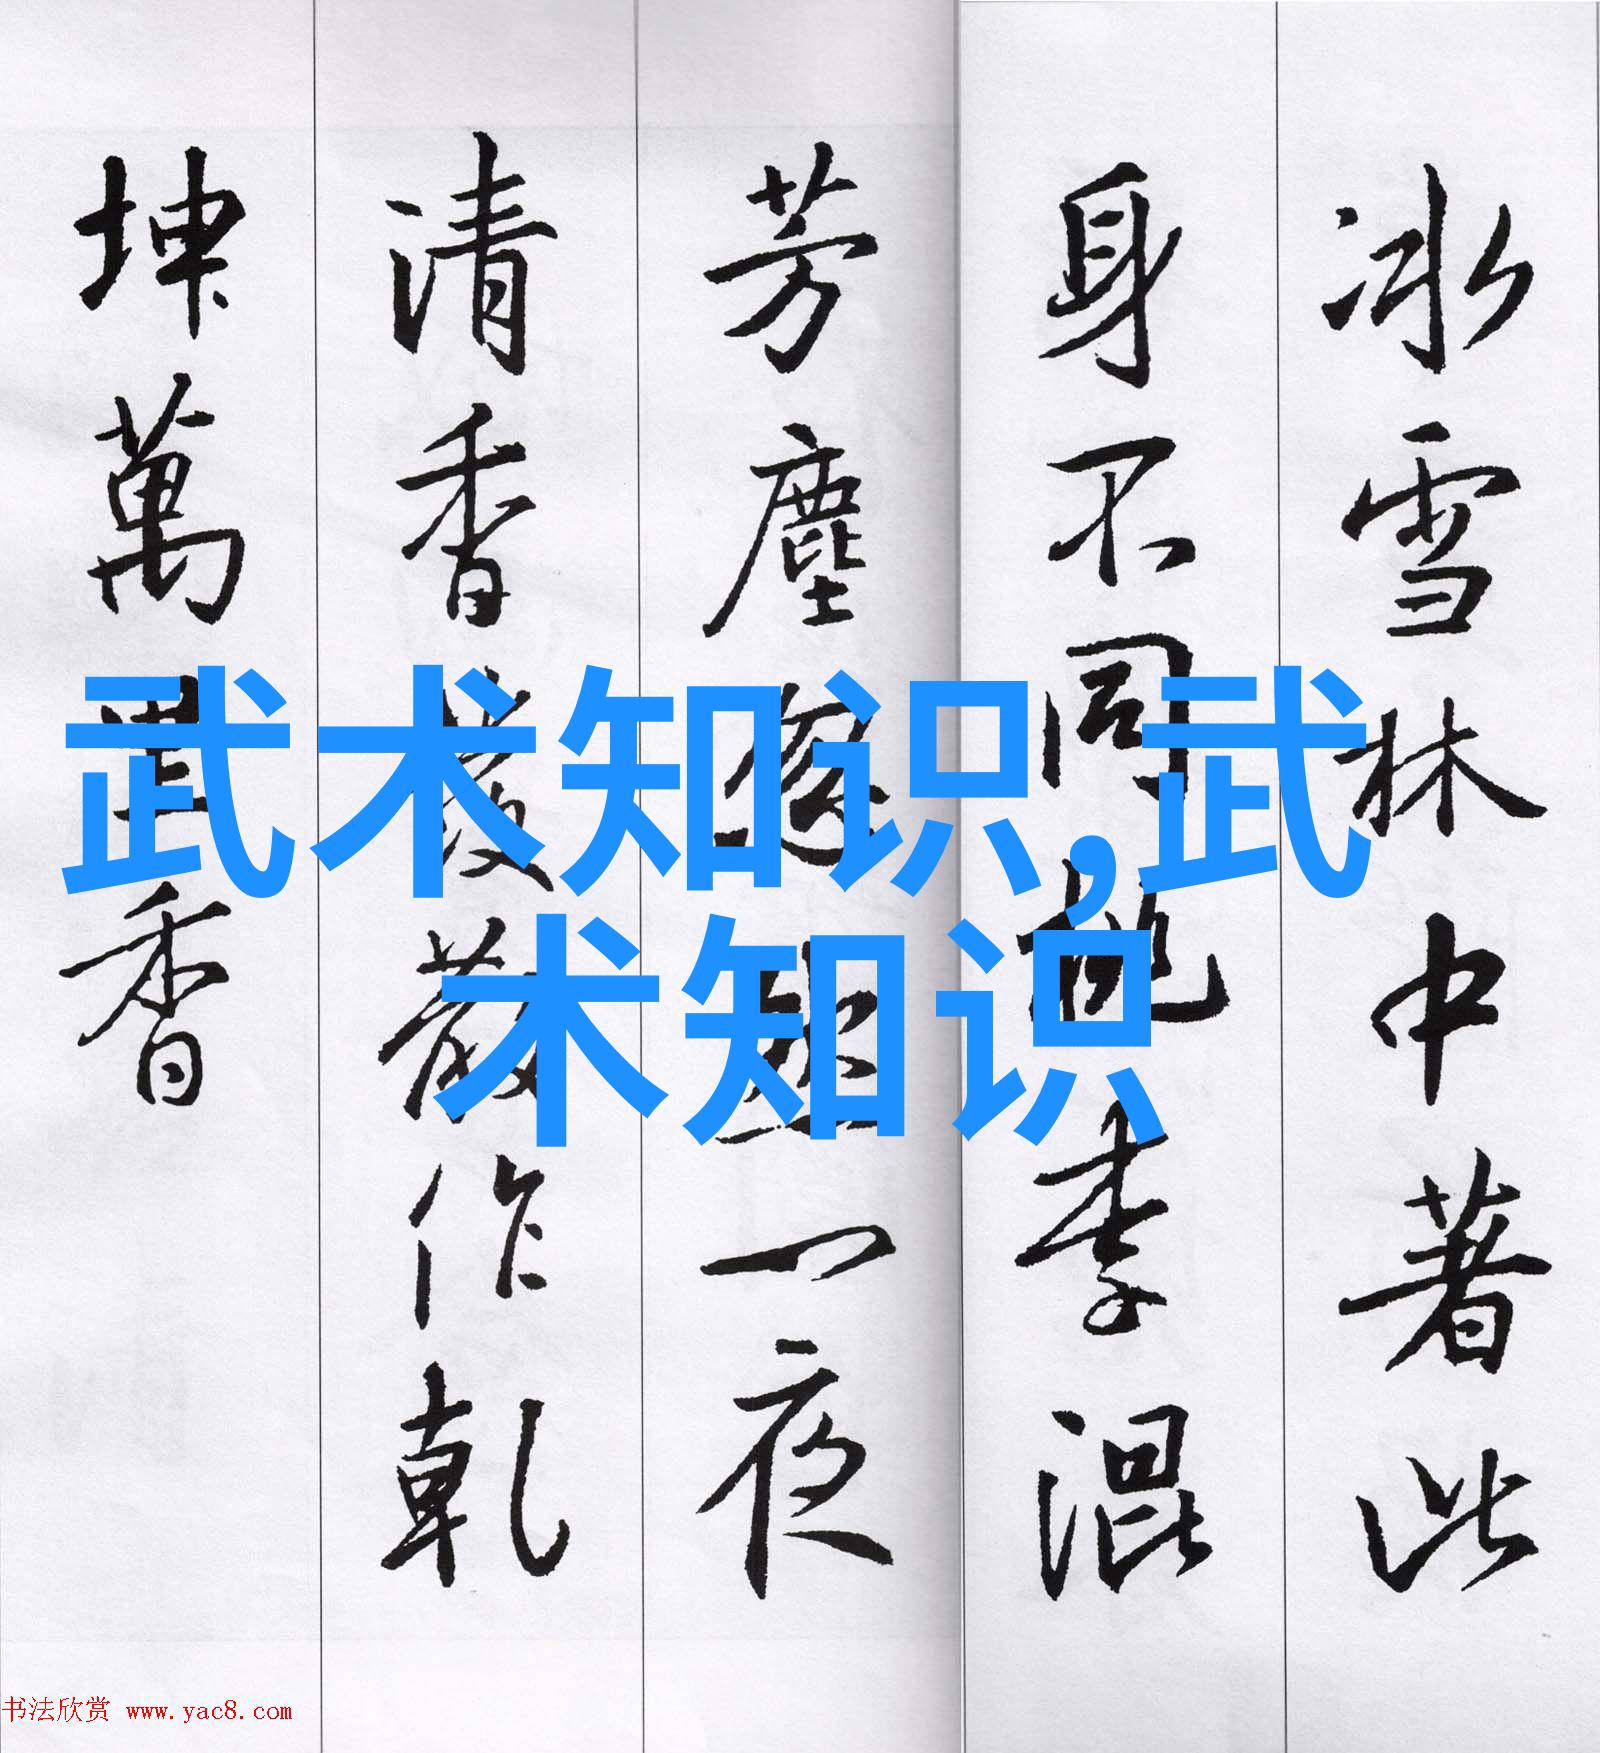 冰雪林中著此
身不同桃李混
芳塵忽然一夜
清香發散作乾
坤萬里香
武术知识,武
术知识
书法欣赏 www.yac8.com